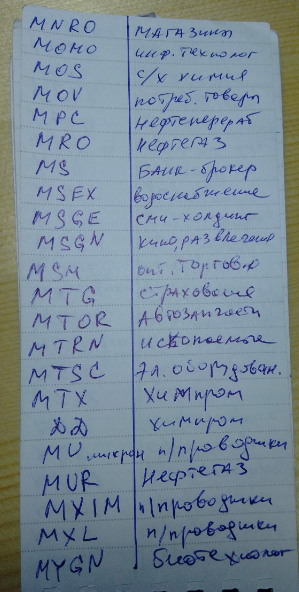 MNRO магазины
MOMO инф. технолог
MOS с/х химия
MOV потреб. товары
MPC нефтеперераб
MRO нефтегаз
MS Банк-брокер
MSEX водоснабжение
MSGE сми-холдинг
MSGN кино, развлечения
MSM опт. торговля
MTG страхование
MTOR Автозапчасти
MTRN ископаемые
MTSC эл. оборудован.
MTX Химпром
ДД химпром
MU микрон п/проводники
MUR Нефтегаз
MXIM п/проводники
MXL п/проводники
MYGN биотехнолог